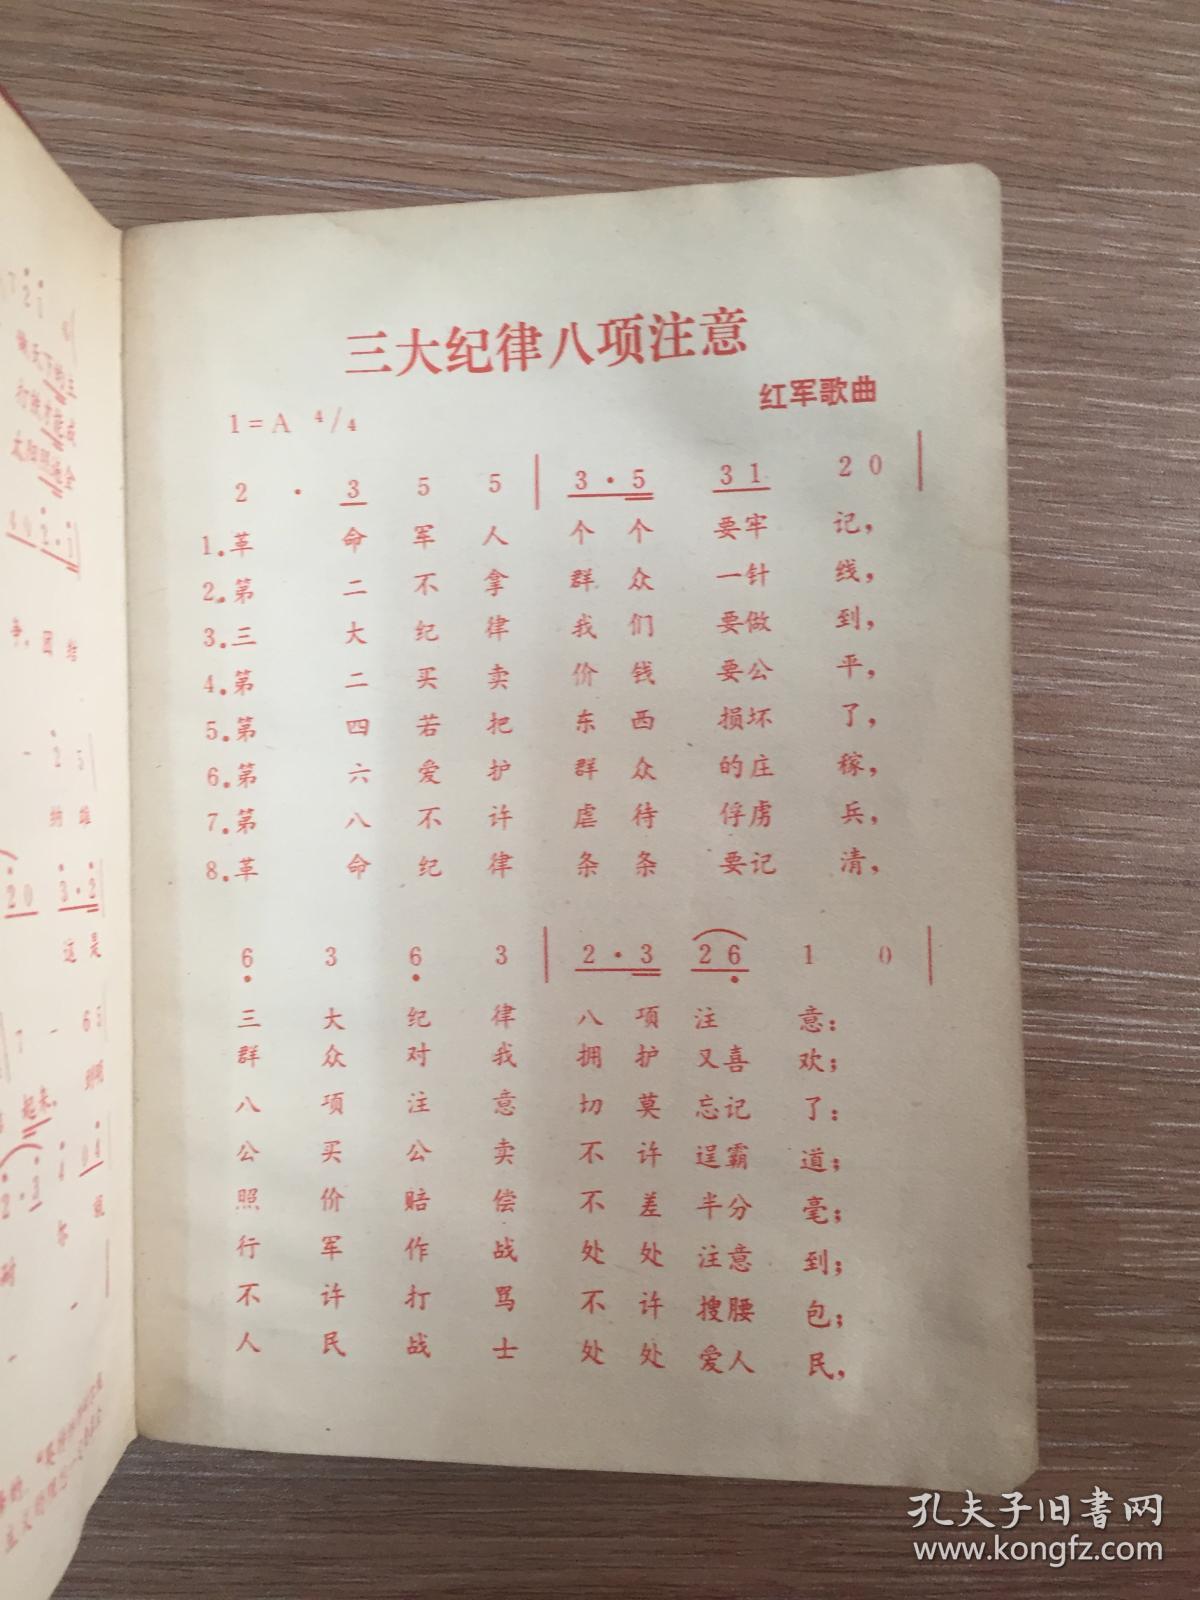 三大纪律八项注意
红军歌曲
1=A 4/4
2 · 3 5 5 | 3·5 31 20 |
1.革命军人个个要牢记,
2.第二不拿群众一针线,
3.三大纪律我们要做到,
4.第二买卖价钱要公平,
5.第四若把东西损坏了,
6.第六爱护群众的庄稼,
7.第八不许虐待俘虏兵,
8.革命纪律条条要记清,
6 3 6 3 | 2·3 26 1 0 |
三大纪律八项注意:
群众对我拥护又喜欢;
八项注意切莫忘记了:
公买公卖不许逞霸道;
照价赔偿不差半分毫;
行军作战处处注意到;
不许打骂不许搜腰包;
人民战士处处爱人民,
争,团结
纳雄
这是
起来.
孔夫子旧书网
www.kongfz.com